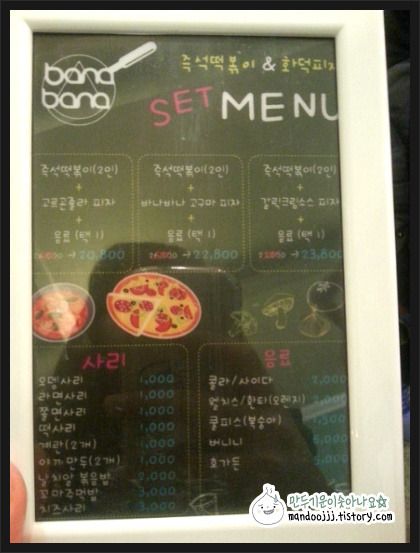 bana
bana
즉석떡볶이 & 화덕피자
SET MENU
즉석떡볶이(2인)
+
고르곤졸라 피자
+
음료 (택 1)
→ 20,800
즉석떡볶이(2인)
+
바나바나 고구마 피자
+
음료 (택 1)
→ 22,800
즉석떡볶이(2인)
+
갈릭크림소스 피자
+
음료 (택 1)
→ 23,800
사리
오뎅사리 1,000
라면사리 1,000
쫄면사리 1,000
떡사리 1,000
계란(2개) 1,000
야끼만두(2개) 1,000
날치알 볶음밥 2,000
꼬마주먹밥 3,000
치즈사리 3,000
음료
콜라/사이다 2,000
웰치스/환타(오렌지)
쿨피스(복숭아)
버니니
호가든
만두기운이솟아나요☆
mandoojjj.tistory.com